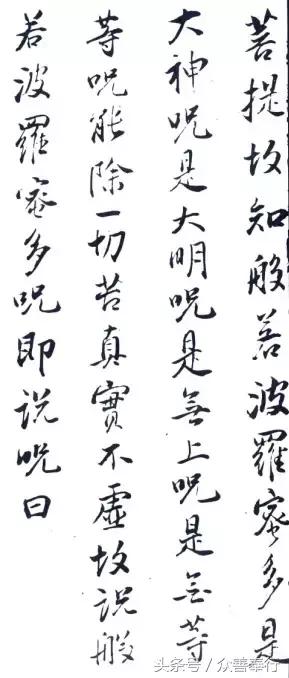 菩提故知般若波羅蜜多是
大神呪是大明呪是無上呪是無等
等呪能除一切苦真實不虛故說般
若波羅蜜多呪即說呪曰
头条号／众善奉行